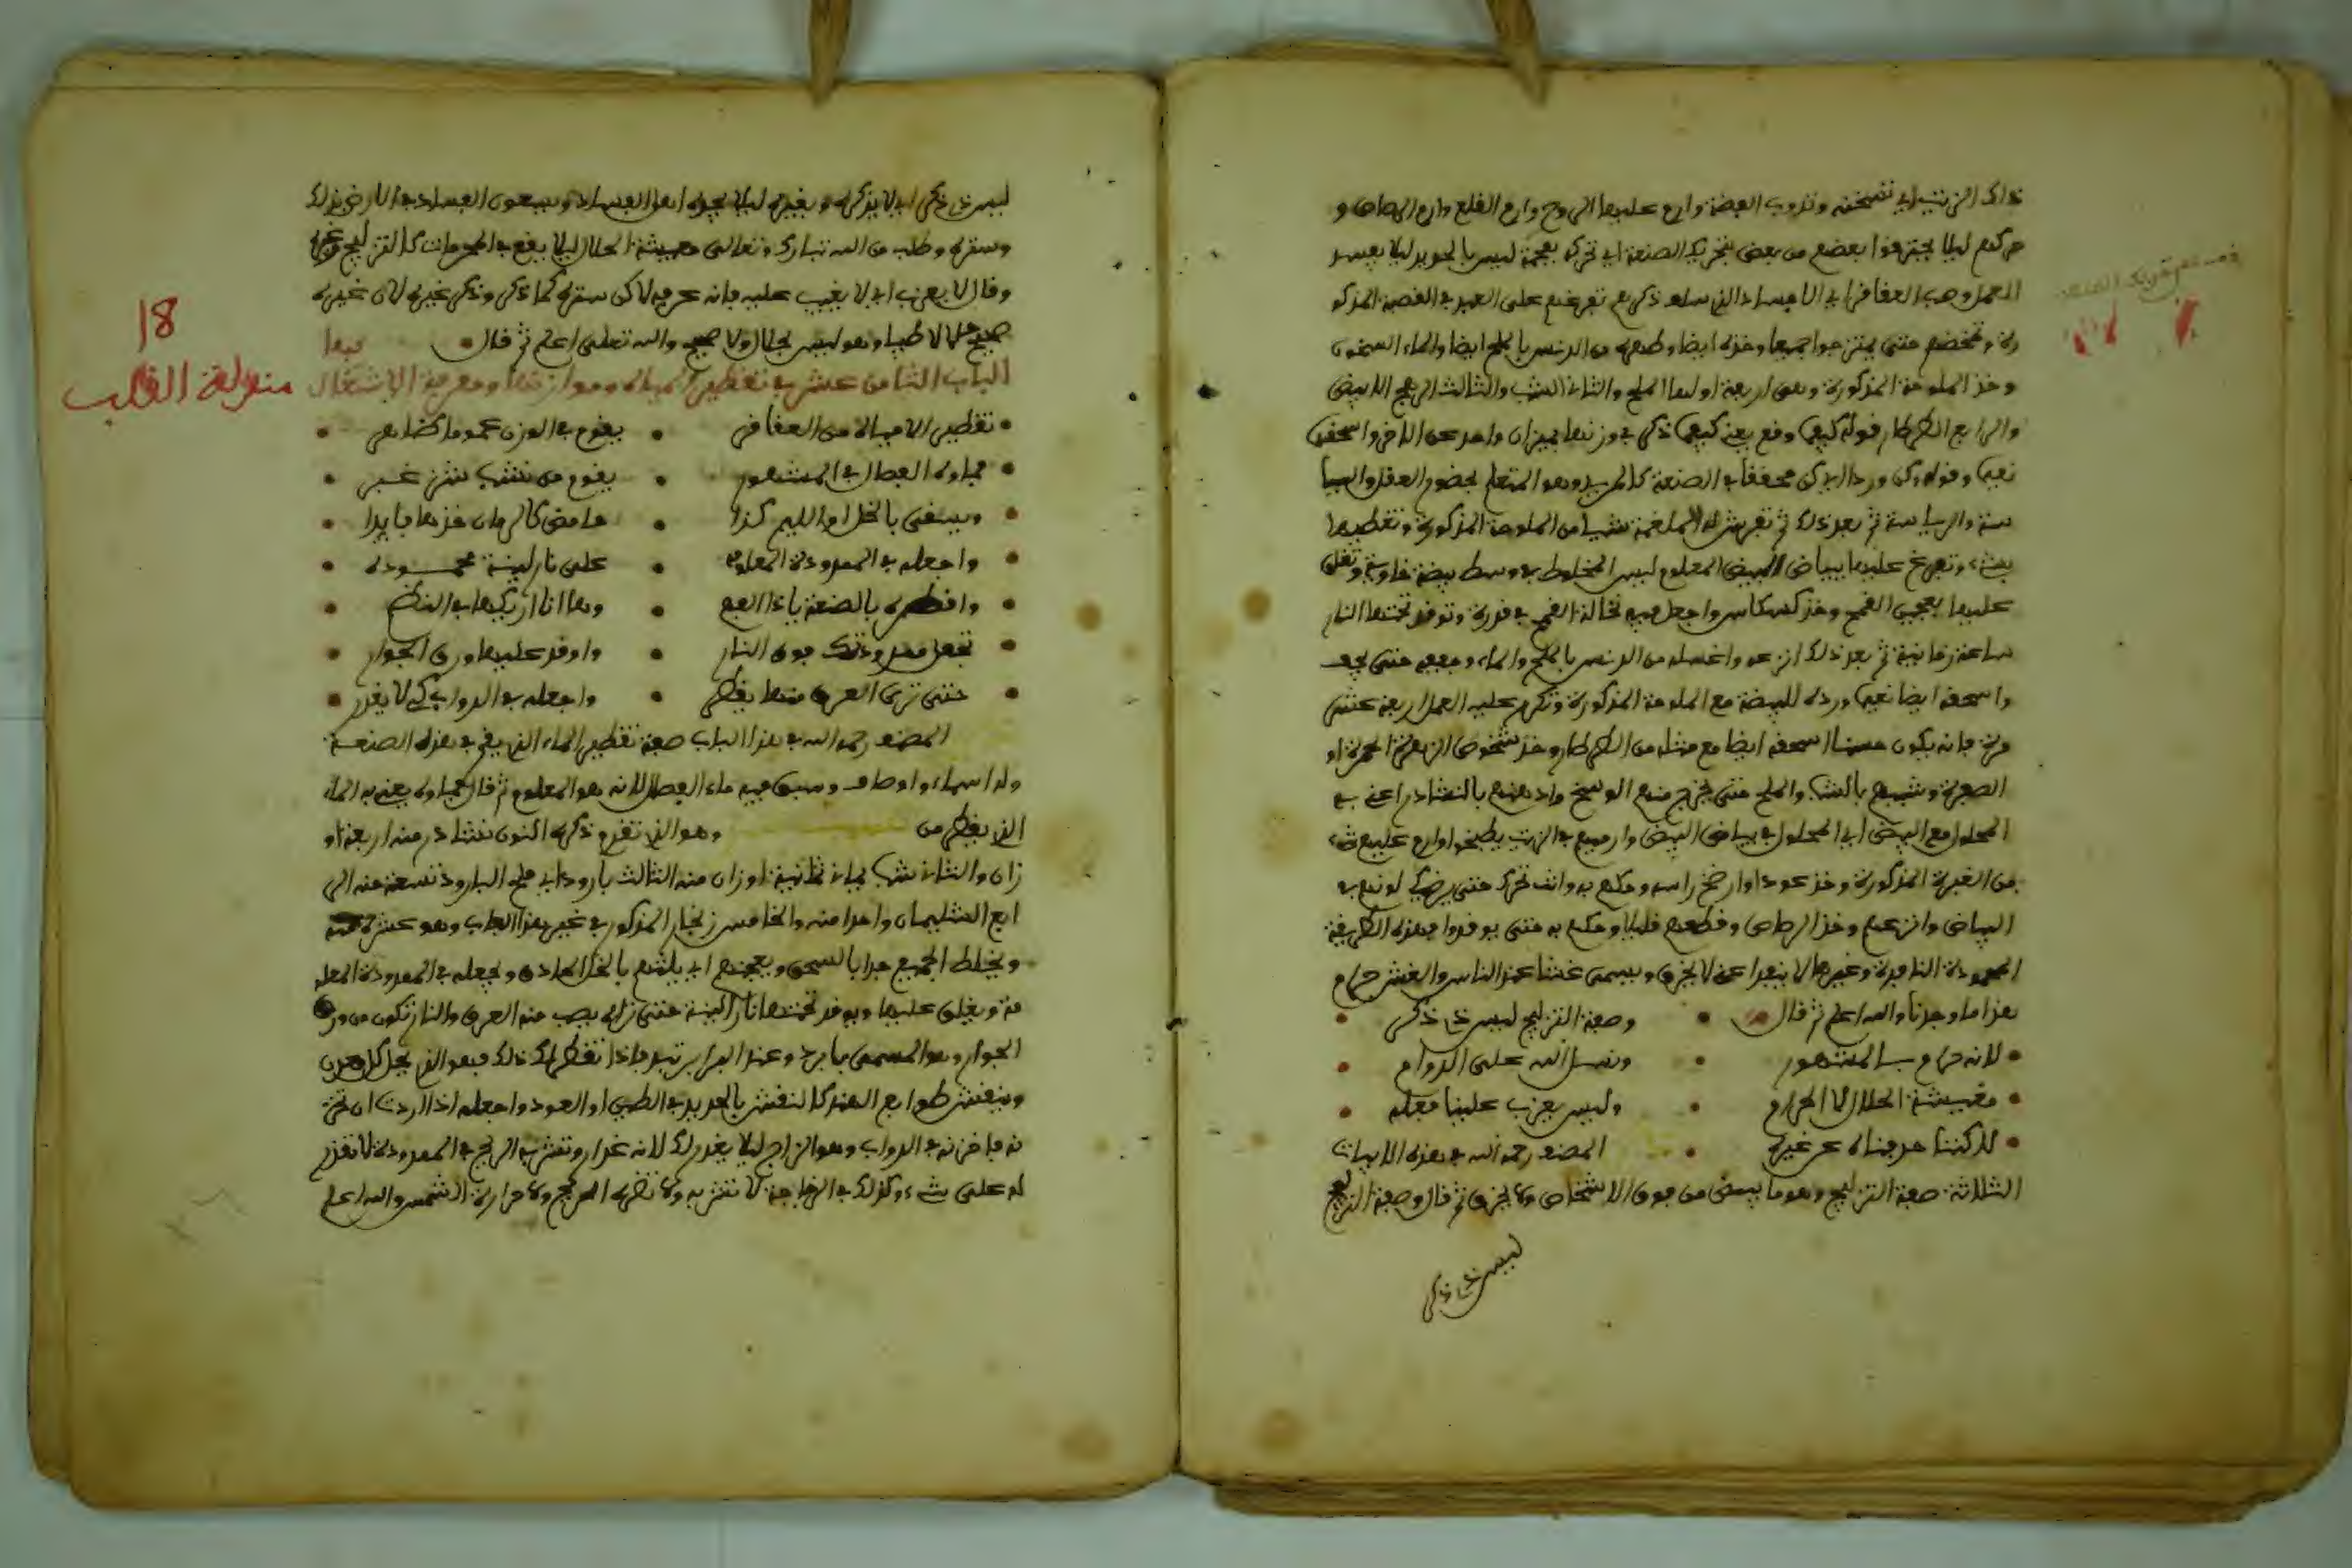 ذلك الزيت اي تسخنه وتذوب الفضة وارم عليها الروح وارم القلع وارم الرصاص و
حركهم ليلا يحترفوا بعضهم من بعض بتحريك الصنعة اي تحركه بفحمة ليس بالحديد ليلا يفسد
العمل وهب العقاقر اي الاجساد الذي سلف ذكرهم تفرغهم على العبد في القصبة المذكو
رة وتمخضهم حتى يمتزجوا جميعا وخذه ايضا وطهره من الدنس بالملح ايضا والماء السخون
وخذ الملوحة المذكورة وهي اربعة اولها الملح والثاني الشب والثالث الرهج الابيض
والرابع الطرطار قوله كيفما وقع يعني كيفما ذكر في وزنها بميزان واحد عن الاخر واسحقهن
نعما وقوله وكن ورد اي كن محققا في الصنعة كالمريد وهو المتعلم بحضور العقل والسيا
سة والرياسة ثم بعد ذلك ثم تفرش للملغمة شيا من الملوحة المذكورة وتغطيها
بشيء وتفرغ عليها بياض البيض المعلوم ليس المخلوط في وسط بيضة خاوية وتغلق
عليها بعجين القمح وخذ كسكاس واجعل فيه نخالة القمح في قدرة وتوقد تحتها النار
ساعة زمانية ثم بعد ذلك انزعه واغسله من الدنس بالملح والماء وجففه حتى يجف
واسحقه ايضا نعما ورده للبيضة مع الملوحة المذكورة وتكرر عليه العمل اربعة عشر
مرة فانه يكون حسنا اسحقه ايضا مع مثله من الطرطار وخذ شخوص الزهرة الحمرة او
الصفرة وشببهم بالشب والملح حتى يخرج منهم الوسخ وادهنهم بالنشادر اعني به
المحلول مع البيض اي المحلول في بياض البيض وارميهم في الزيت يطبخوا وارم عليهم شيء
من الغبرة المذكورة وخذ عودا وارضخ راسه وحكهم به وانت تحرك حتى يرضيك لونهم في
البياض وانزعهم وخذ الرصاص وقطعهم قليلا وحكهم به حتى يوقدوا فهذه الطريقة
المحمودة النافدة وغيرها لا ينفد اعني لا يخرق ويسمى غشا عند الناس والغش حرام
هذا ما وجدنا والله اعلم ثم قال وصفة التزليج ليس ذي ذكر
لانه حرام بالمشهور ونسل الله على الدوام
معيشة الحلال لا الحرام وليس يعزب علينا فعله
لاكننا عرفناه عن غيره المصنف رحمه الله في هذه الابيات
الثلاثة صفة التزليج وهو ما يسقى من فوق الاشخاص ولا يخرق ثم قال وصفة التزليج
ليس ذي ذكر
ليس ذي ذكر اي لا يذكره وبغيره ليلا يجوله اهل الفساد ويسعون الفساد في الارض بذلك
وستره وطلب من الله تبارك وتعالى معيشة الحلال ليلا يقع في المحرمات كالتزليج وغيره
وقال لا يعزب اي لا يغيب عليه فانه عرفه لاكن ستره كما ذكر وذكر غيره لان غيره
صحيح حلالا طيبا وهو ليس بحلال ولا صحيح والله تعلى اعلم ثم قال
الباب الثامن عشر في تقطير المياه وموازنها ومعرفة الاشتغال بها
18
منزلة القلب
تقطير الامياه من العقاقر يقوم في الوزن عموما كضاهر
مياوه الفصال في المشهور يقوم من نشب شز غبر
ويسقى بالخل او الليم كذا حامض كالرمان خذها فايدا
واجعله في المعدودة المعلومه على نار لينة محموده
واقطره بالصنعة ياذا الفهم وها انا اريكها في النظم
تجعل معدودتك فوق النار واوقد عليها ورق الجوار
حتى ترى العرق منها يقطر واجعله في الدواب كي لا يغدر
المصنف رحمه الله في هذا الباب صفة تقطير الماء الذي يقع في هذه الصنعة
وله اسماء واوصاف وسبق فيه ماء الفصال لانه هو المعلوم ثم قال مياوه يعني به الماء
الذي يقطر من وهو الذي تقدم ذكره النون نشادر منه اربعة او
زان والثاني شب يماني ثمانية اوزان منه الثالث بارود اي ملح البارود تسعة منه الر
ابع الشليمان واحدا منه والخامس زنجار المذكور في غير هذا الباب وهو عشرة منه
ويخلط الجميع جدا بالسحق ويعجنهم اي يلتهم بالخل الحاذق ويجعله في المعدودة المعلو
مة ويغلق عليها ويوقد تحتها نارا لينة حتى تراه يصب منه العرق والنار تكون من ورق
الجوار وهو المسمى بابرخ وعند البرابر تيد فاذا تقطر لك ذلك فهو الذي يحل كل معدن
وينقش طوابع الهند كالنقش بالحديد في الطين او العود واجعله اذا اردت ان تخز
نه فاخزنه في الدواب وهو الزاج ليلا يغدر لك لانه غدار وتنشربه الريح في المعدودة لا تقدر
له على شيء وكذلك في الزجاجة لا تنشربه ولا تضره الريح ولا حرارة الشمس والله اعلم